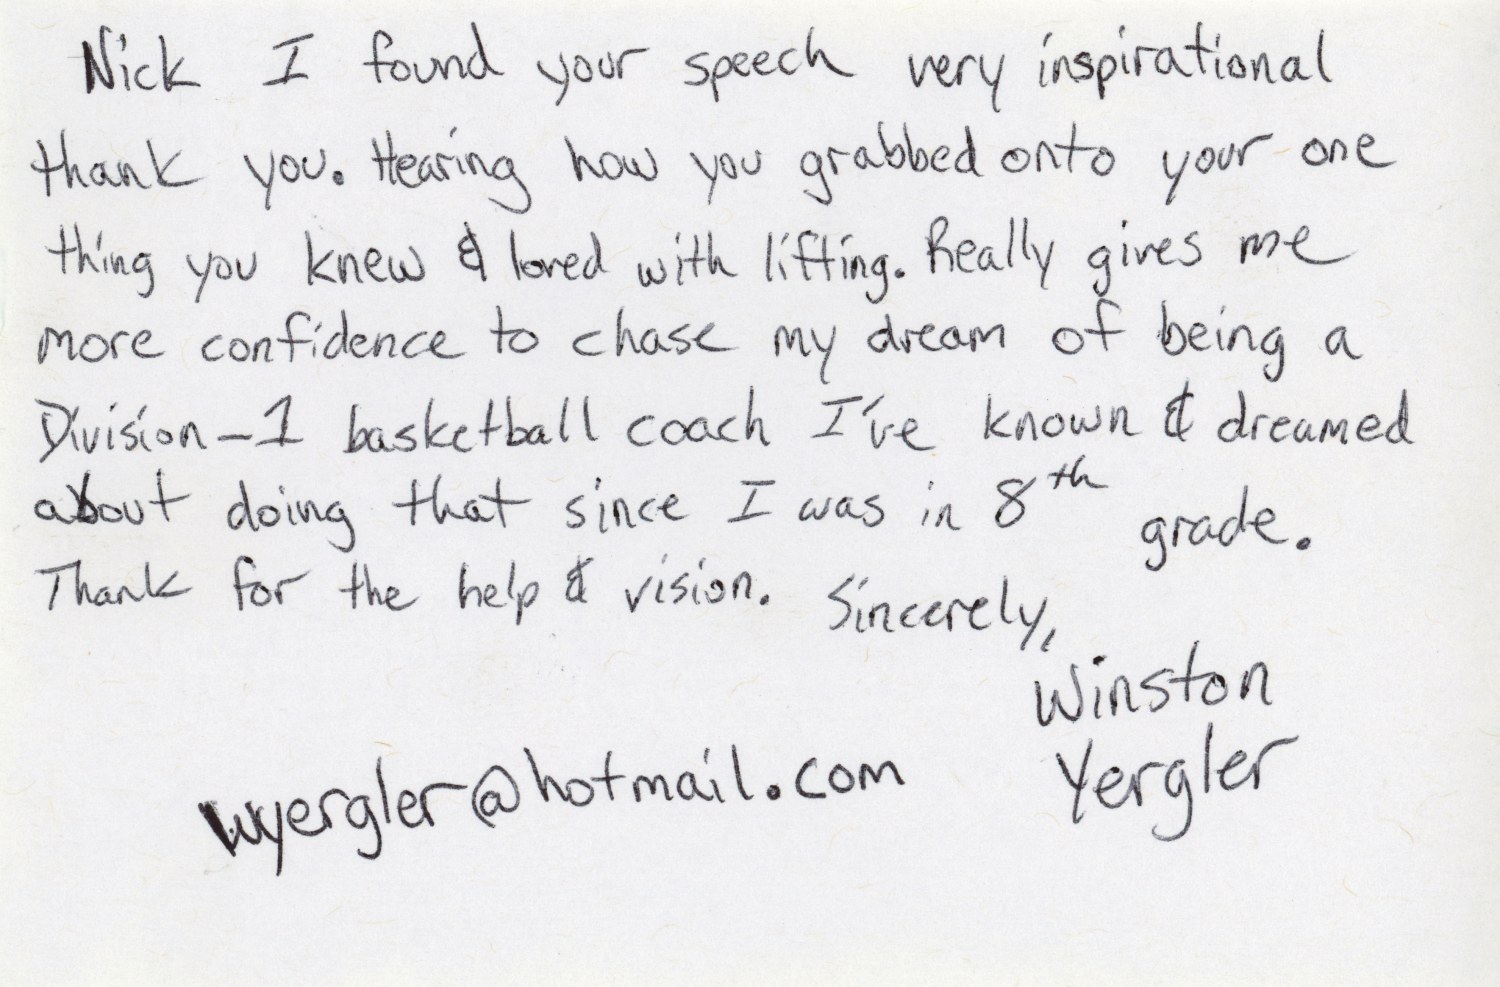 Nick I found your speech very inspirational
thank you. Hearing how you grabbed onto your one
thing you knew & loved with lifting. Really gives me
more confidence to chase my dream of being a
Division-1 basketball coach I've known & dreamed
about doing that since I was in 8th grade.
Thank for the help & vision. Sincerely,
Winston
Yergler
wyergler@hotmail.com